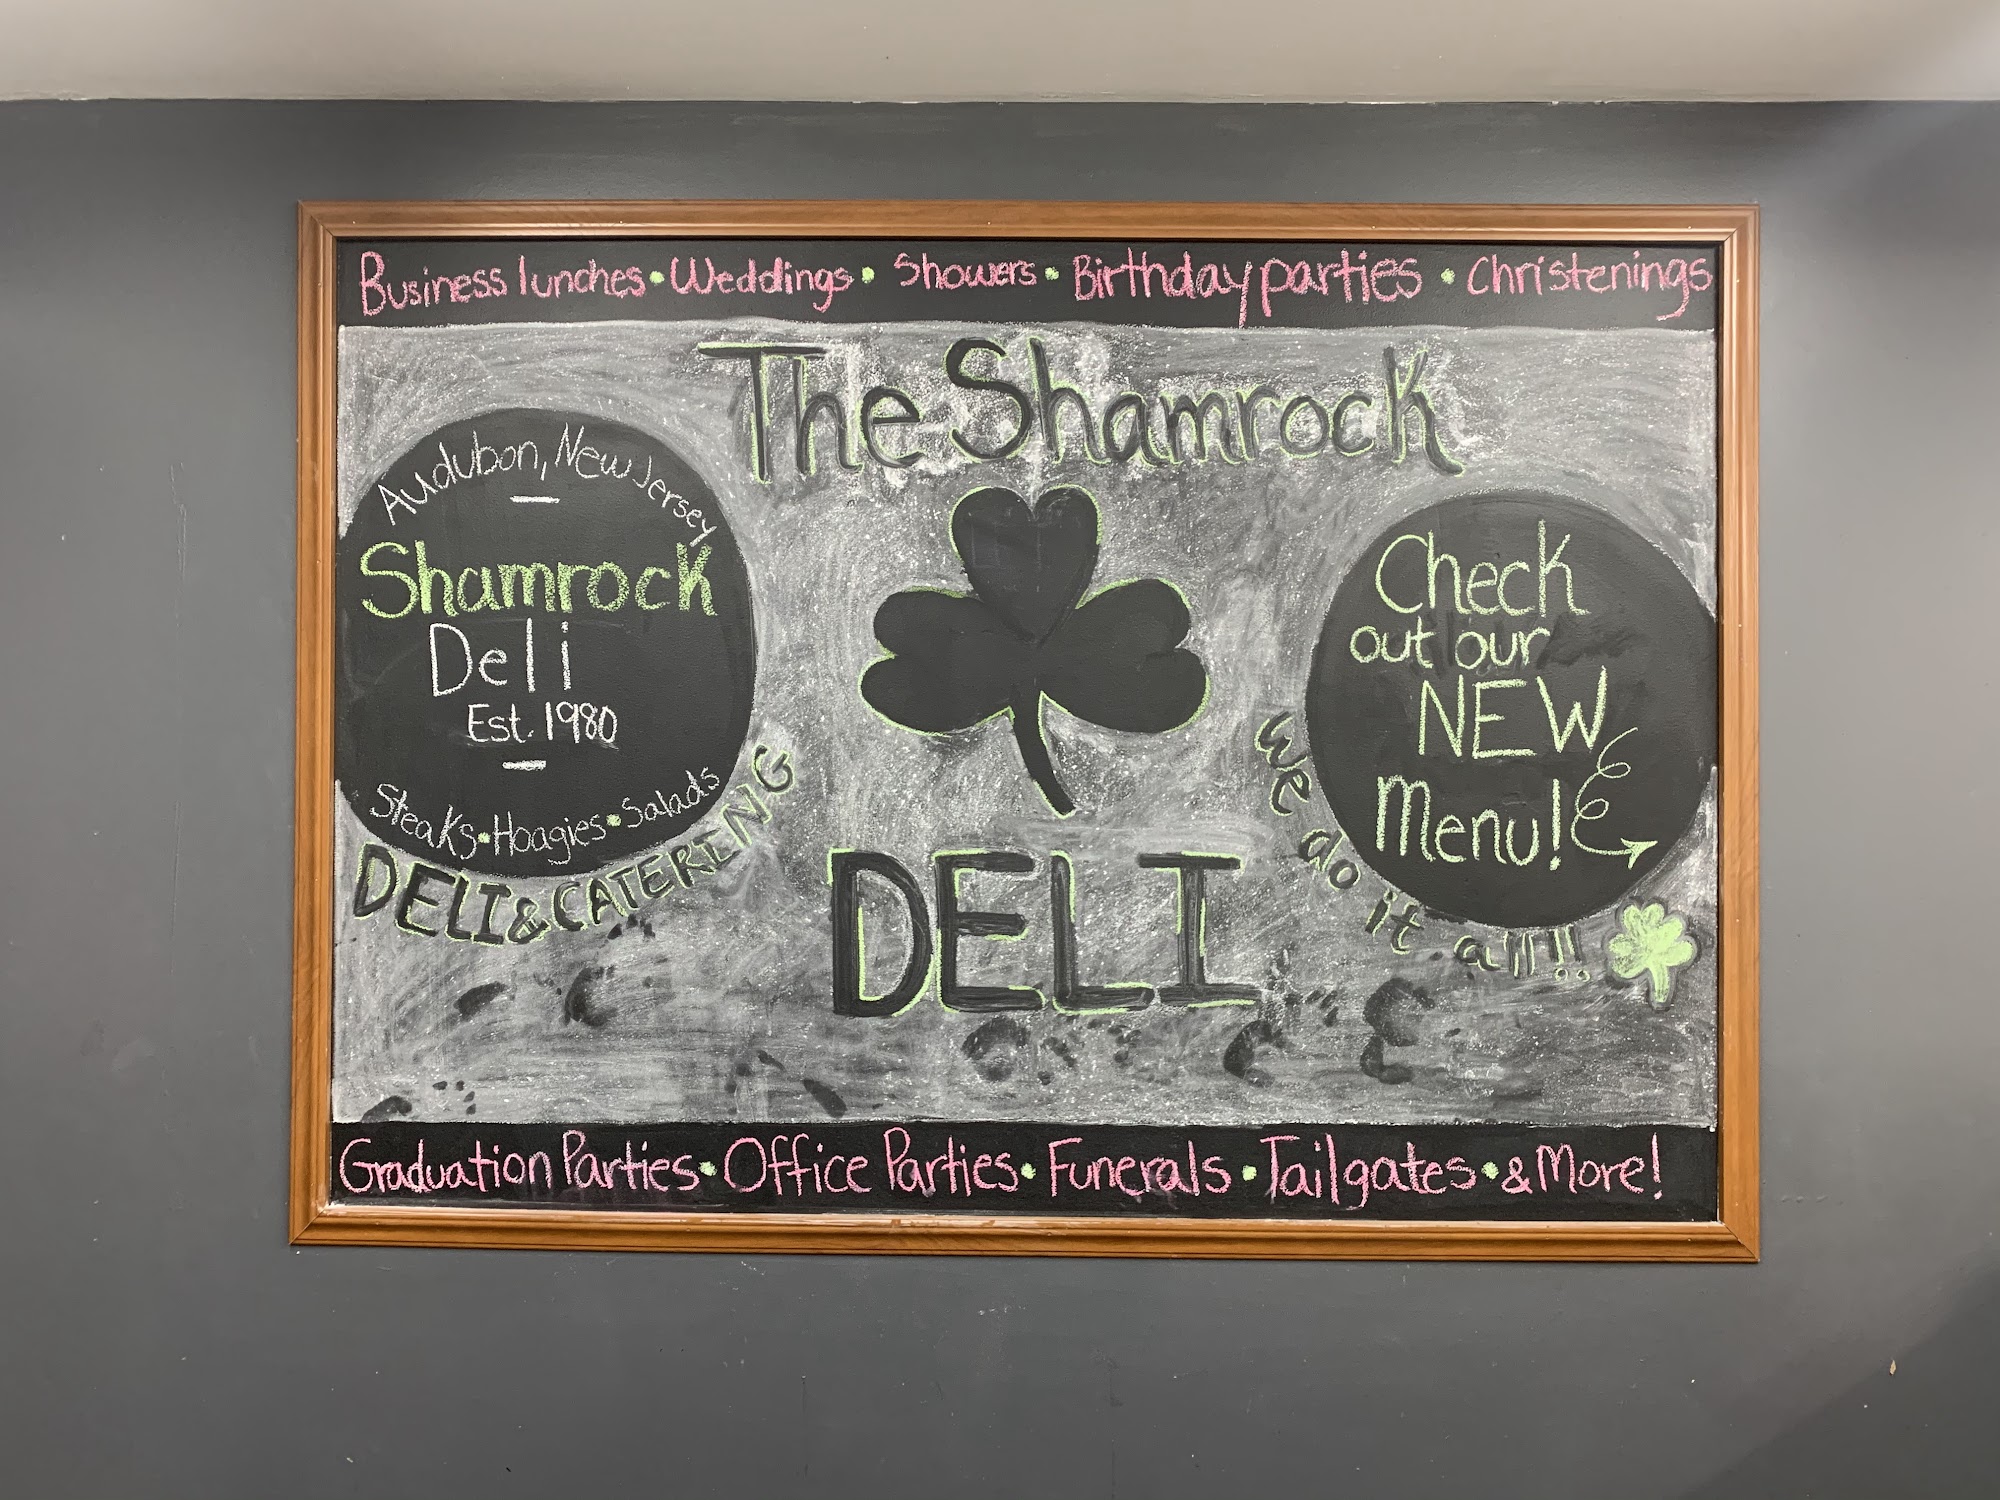 Business lunches • Weddings • Showers • Birthday parties • Christenings
The Shamrock
DELI
Audubon, New Jersey
Shamrock
Deli
Est. 1980
Steaks • Hoagies • Salads
DELI & CATERING
Check
out our
NEW
Menu!
We do it all!!
Graduation Parties • Office Parties • Funerals • Tailgates • & More!